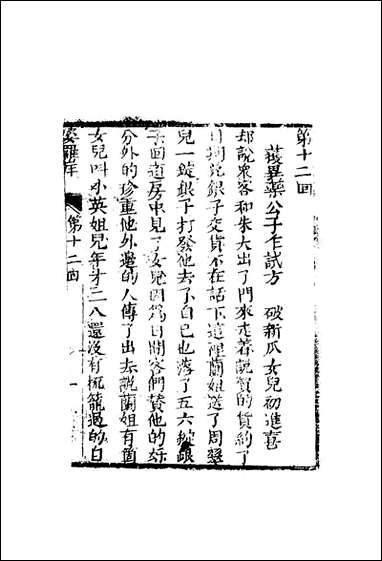 第十二回
獲異藥公子乍試方　破新瓜女兒初進喜
却說衆客和朱大出了門來走着說買的貨約了
日期兌銀子交貨不在話下這裡蘭姐送了周
兒一錠銀子打發他去了自已也落了五六錠銀
子回進房中見了女兒因爲日間客們贊他的好
分外的珍重他外邊的人傳了出去說蘭姐有個
女兒叫小英姐兒年才二八還没有梳籠過的白
第十二回